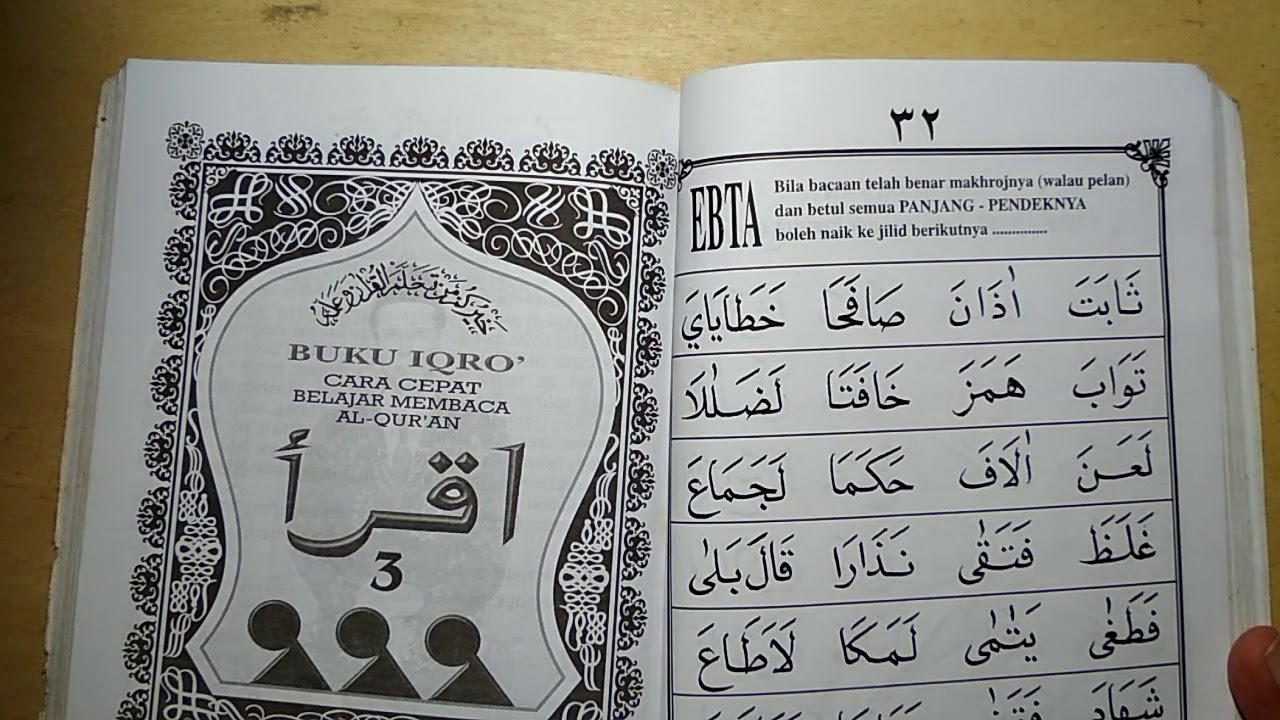 BUKU IQRO'
CARA CEPAT
BELAJAR MEMBACA
AL-QUR'AN
اقرأ
3
٣٢
EBTA
Bila bacaan telah benar makhrojnya (walau pelan)
dan betul semua PANJANG - PENDEKNYA
boleh naik ke jilid berikutnya ..............
ثَابَتَ اٰذَانَ صَافَحَا خَطَايَايَ
تَوَابَ هَمَزَ خَافَتَا لَضَلٰلَا
لَعَنَ اٰلَافَ حَكَمَا لَجَمَاعَ
غَلَظَ فَتَقٰى نَذَارَا قَالَ بَلٰى
فَطَغٰى يَتٰمٰى لَمَكَا لَاَطَاعَ
شَهَادَ